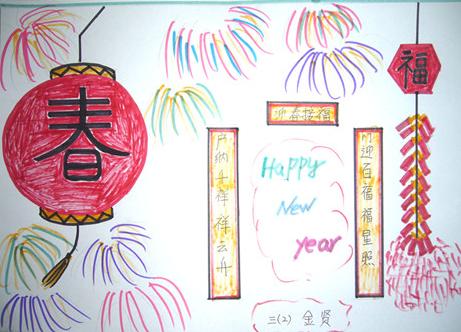 春
福
迎春接福
户纳千祥祥云升
门迎百福福星照
Happy
New
year
三(2) 金贤